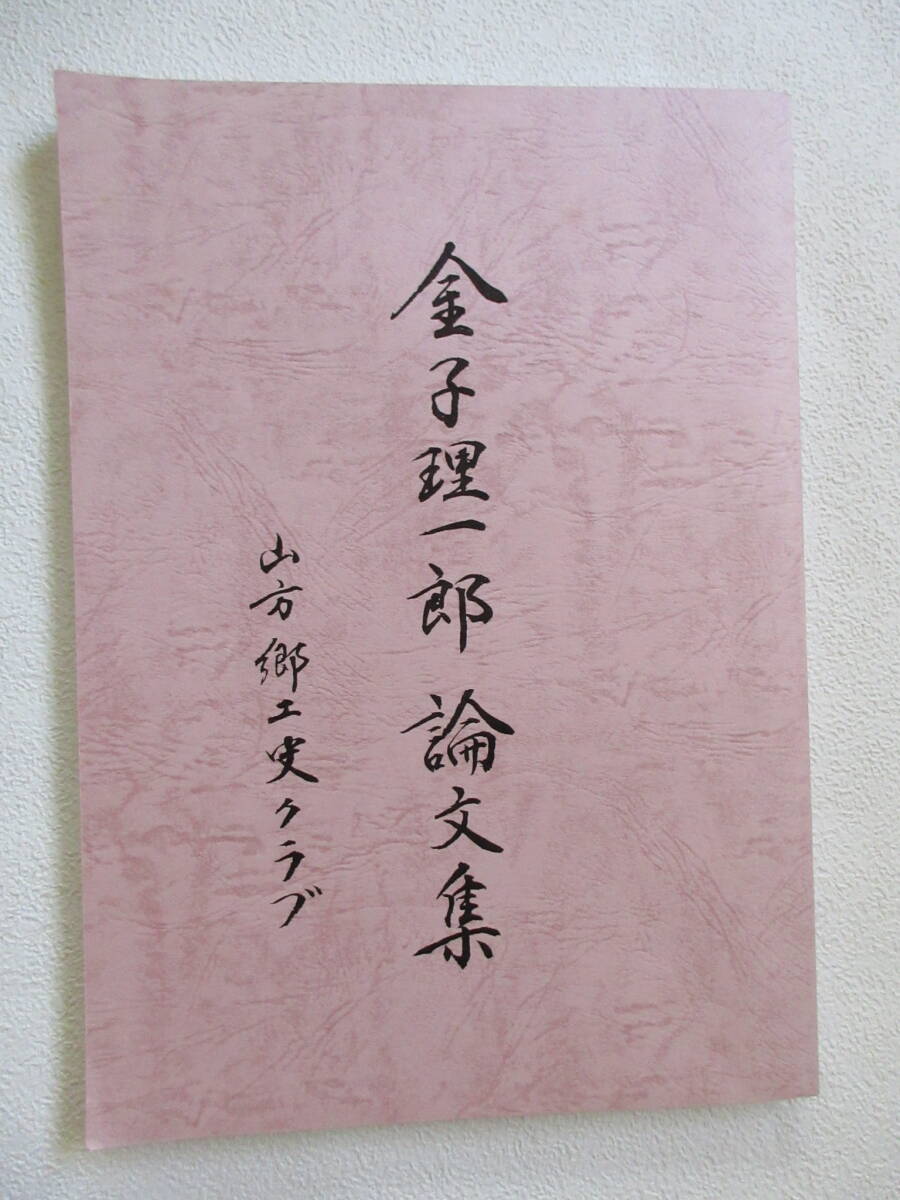 金子理一郎 論文集
山方郷土史クラブ